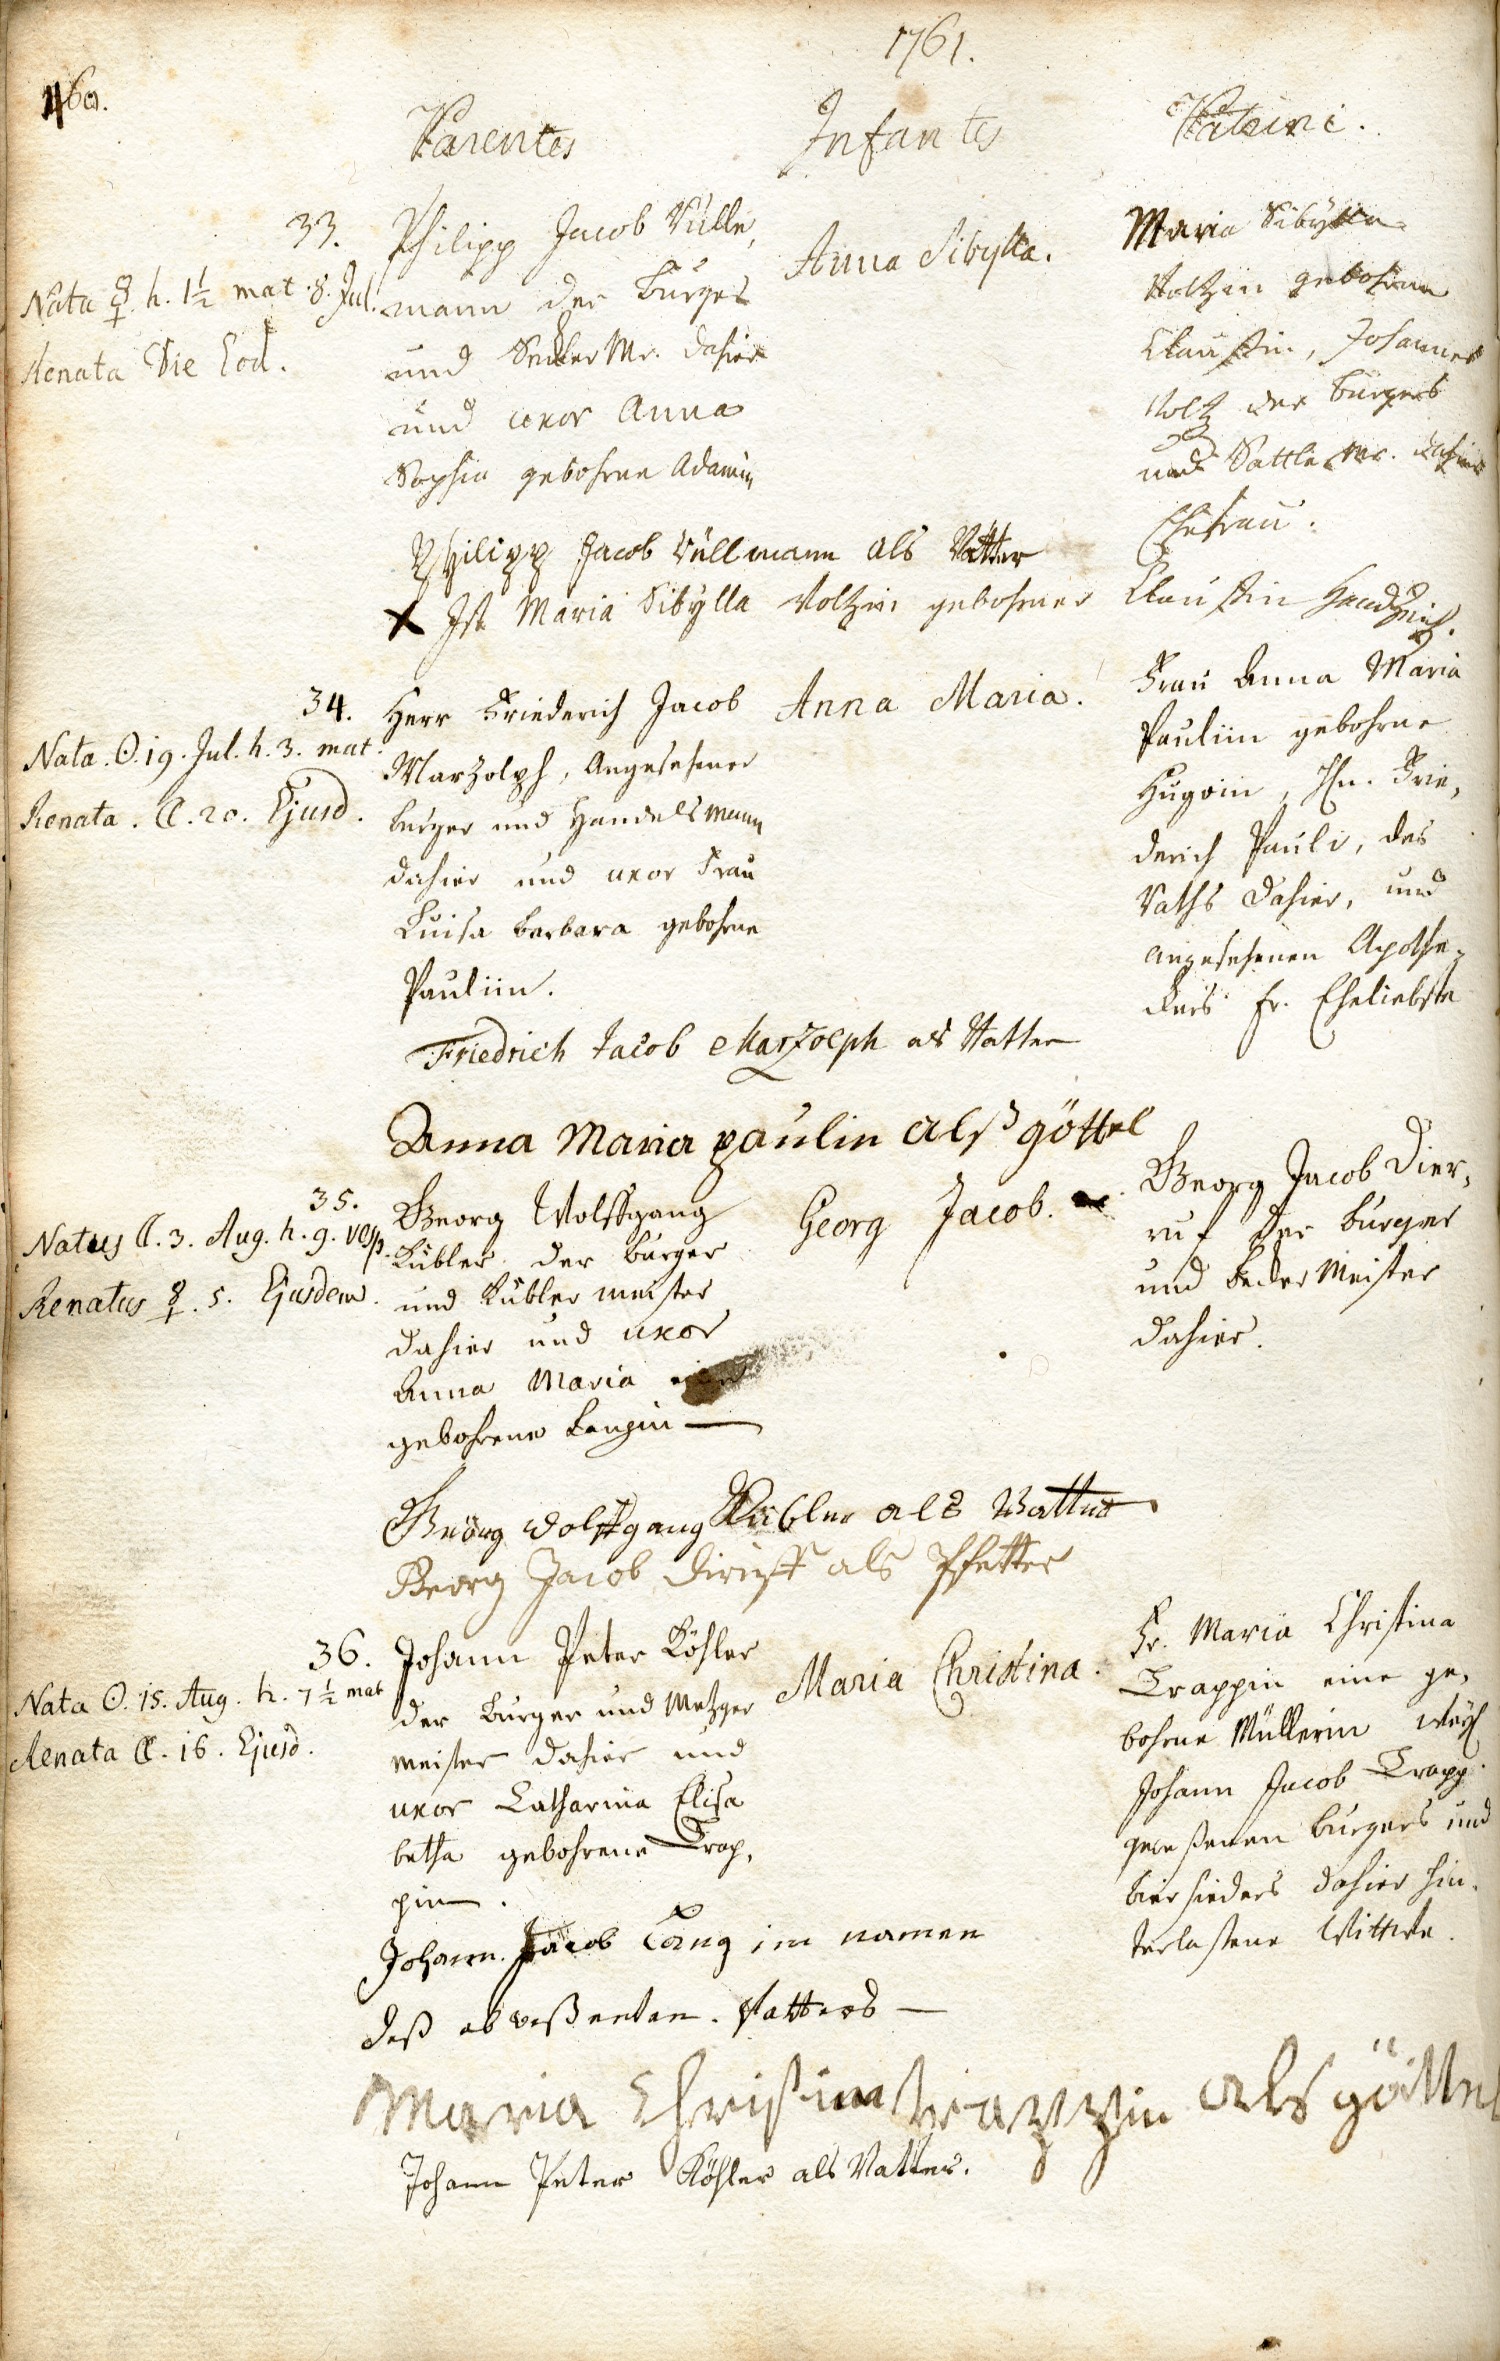 1761.
460.
Parentes
Infantes
Patrini.
33.
Nata ☿. h. 1½ mat. 8. Jul.
Renata Die Eod.
Philipp Jacob Bülle,
mann der Burger
und Mr. dahier
und uxor Anna
Sophia gebohrne Adamin
Anna Sibylla.
Maria Sibylla
Voltzin gebohrne
Claussin, Johannes
Voltz des Burgers
und Sattler Mr. dahier
Ehefrau.
Philipp Jacob Büllmann als Vatter
X Ist Maria Sibylla Voltzin gebohrner Claussin Handzeich.
34.
Nata. ☉. 19. Jul. h. 3. mat.
Renata. ☾. 20. Ejusd.
Herr Friederich Jacob
Marzolph, Angesehener
burger und Handelsmann
dahier und uxor Frau
Luisa Barbara gebohrne
Pauliin.
Anna Maria.
Frau Anna Maria
Pauliin gebohrne
Hugoin, Hn. Frie,
derich Pauli, des
Raths dahier, und
angesehenen Apothe-
ckers fr. Eheliebste
Friedrich Jacob Marzolph als Vatter
Anna Maria paulin alß göttel
35.
Natus ☾. 3. Aug. h. 9. vesp.
Renatus ☿. 5. Ejusdem.
Georg Wolffgang
Kübler der burger
und Kübler meister
dahier und uxor
Anna Maria
gebohrene Langin —
Georg Jacob.
Georg Jacob Dier,
ruf der burger
und Becker Meister
dahier.
Georg wolffgang Kübler als Vatter
Georg Jacob Dirruff als Pfetter
36.
Nata ☉. 15. Aug. h. 7½ mat
Renata ☾. 16. Ejusd.
Johann Peter Köhler
der Burger und Metzger
meister dahier und
uxor Catharina Elisa
betha gebohrene Trap,
pin.
Maria Christina.
Fr. Maria Christina
Trappin eine ge,
bohrne Müllerin weyl
Johann Jacob Trapp
geweßenen burgers und
biersieders dahier hin,
terlassene Wittwe.
Johann Jacob Lang im namen
deß abweßenten Vatters —
Maria Christina trappin als göttel
Johann Peter Köhler als Vatter.